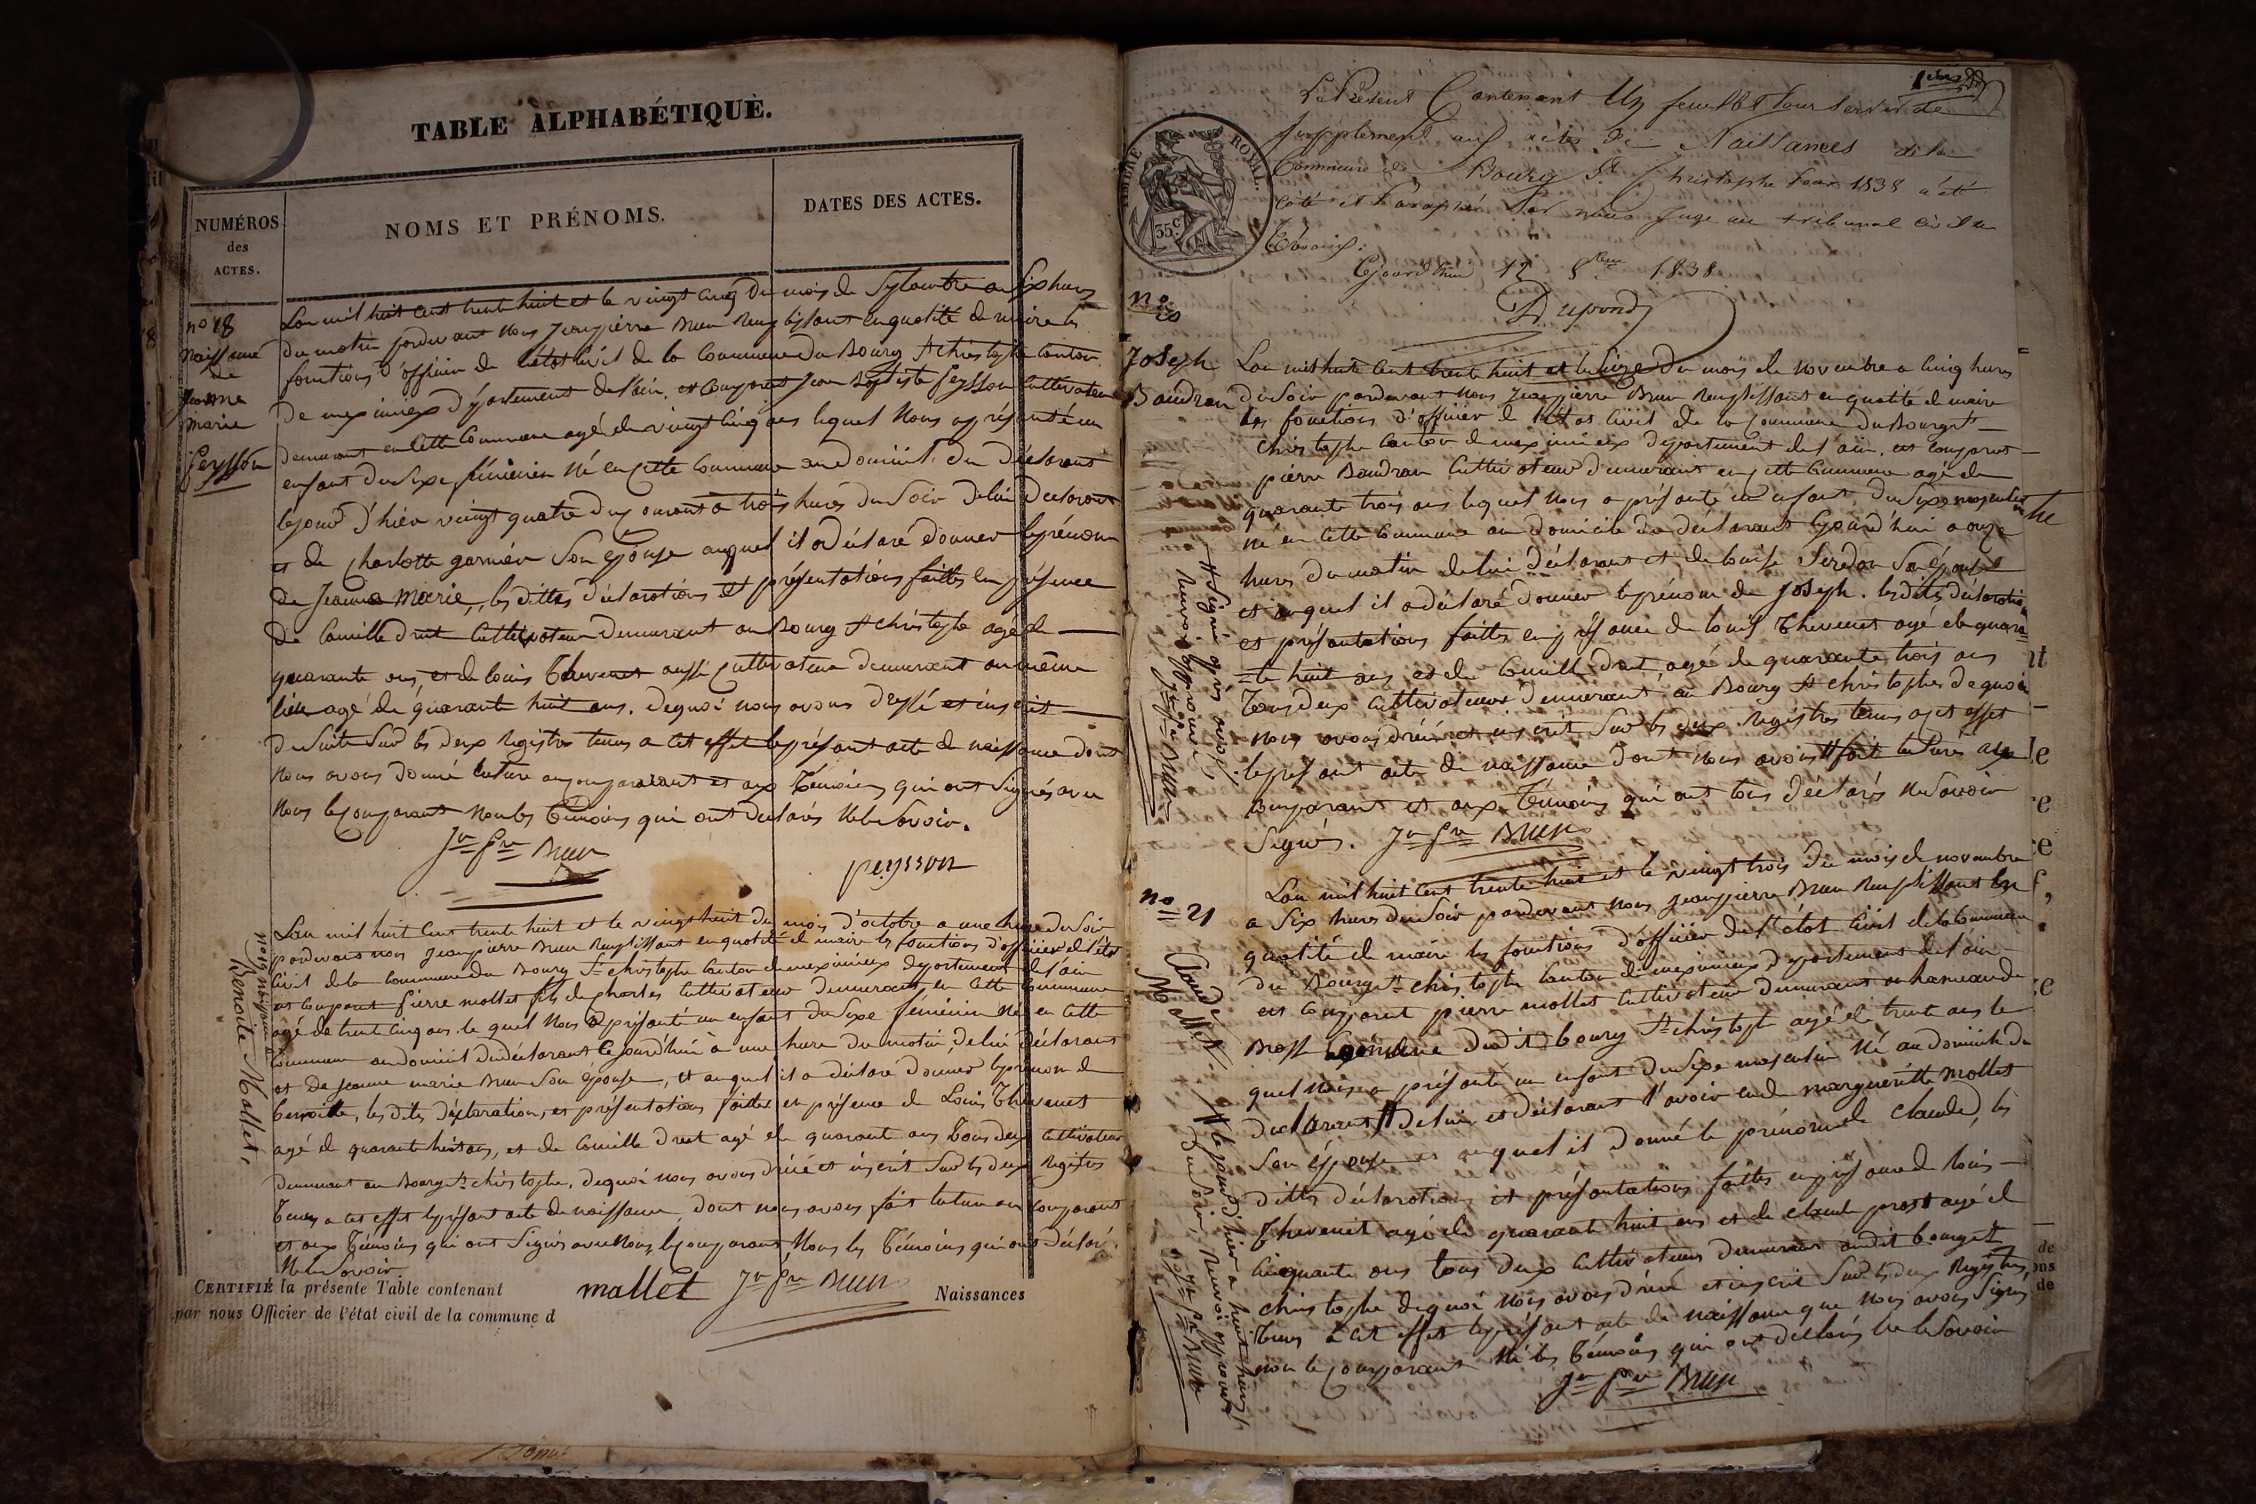 TABLE ALPHABÉTIQUE.
NUMÉROS
des
ACTES.
NOMS ET PRÉNOMS.
DATES DES ACTES.
no 18
Naissance
de
Jeanne
marie
peysson
L'an mil huit cent trente huit et le vingt cinq du mois de Septembre a Six heures
du matin pardevant nous Jeanpierre Brun Remplissant en qualité de maire les
fonctions d'officier de l'état civil de la Commune du Bourg St christophe Canton
de meximieux département de l'ain, est comparut Jean Baptiste peysson Cultivateur
demeurant en cette Commune agé de vingt cinq ans lequel Nous a présenté un
enfant du Sexe féminin Né en cette Commune au domicile du déclarant
le jour d'hier vingt quatre du courant a trois heures du Soir de lui déclarant
et de Charlotte garnier Son épouse auquel il a déclaré donner le prénom
de Jeanne Marie, les dittes déclarations et présentations faittes en présence
de Camille druet Cultivateur Demeurant au Bourg St christophe agé de
quarante ans, et de louis Thevenet aussi Cultivateur demeurant au même
lieu agé de quarante huit ans. de quoi nous avons dressé et inscrit
de Suite Sur les deux Registres tenus a cet effet le présent acte de naissance dont
nous avons donné lecture au comparant et aux Témoins qui ont Signés avec
Nous le comparant Non les Témoins qui ont déclarés Ne le Savoir.
Jn pre Brun
peysson
no 19 naissance de
Benoite Mallet,
L'an mil huit Cent trente huit et le vingt huit du mois d'octobre a une heure du Soir
pardevant nous Jeanpierre Brun Remplissant en qualité de maire les fonctions d'officier de l'état
Civil de la Commune du Bourg St christophe Canton de meximieux département de l'ain
est Comparut pierre mollet fils de charles Cultivateur demeurant en Cette Commune
agé de trente cinq ans le quel Nous a présenté un enfant du Sexe féminin Né en Cette
Commune au domicile du déclarant Cejourd'hui à une heure du matin, de lui déclarant
et de Jeanne marie Brun Son épouse, et auquel il a déclaré donner le prénom de
benoitte, les dites déclaration, et présentations faittes en présence de Louis Thevenet
agé de quarante huit ans, et de Camille druet agé de quarante ans Tous deux Cultivateurs
demeurant au Bourg St christophe, de quoi nous avons dréssé et inscrit Sur les deux Registres
Tenus a cet effet le présent acte de naissance, dont nous avons fait lecture au comparant
et aux Témoins qui ont Signés avec Nous, le comparant Non les Témoins qui ont déclaré
Ne le Savoir.
CERTIFIÉ la présente Table contenant
mallet Jn pre Brun
Naissances
par nous Officier de l'état civil de la commune d
Le Présent Contenant Un feuillet Pour Servir de
Supplément aux actes de Naissances de la
Commune de Bourg St Christophe Pour 1838 a été
Coté et Paraphé Par nous Juge au tribunal civil de
Trévoux.
Cejourd'hui 12 8bre 1838
Dupond
TIMBRE ROYAL.
35 c
no
20
Joseph
Baudran
L'an mil huit Cent trente huit et le Seize du mois de novembre a Cinq heures
du Soir pardevant Nous Jeanpierre Brun Remplissant en qualité de maire
les fonctions d'officier de l'état civil de la Commune du Bourg St
Christophe Canton de meximieux département de l'ain, est comparut
pierre Baudran Cultivateur demeurant en cette Commune agé de
quarante trois ans lequel Nous a présenté un enfant du Sexe masculin
né en cette Commune au domicile du déclarant Cejourd'hui a onze
heures du matin de lui déclarant et de louise Son épouse
et auquel il a déclaré donner le prénom de Joseph. les dites déclarations
et présentations faittes en présence de louis Thevenet agé de quaran
te huit ans et de Camille druet agé de quarante trois ans
Tous deux Cultivateurs demeurant au Bourg St christophe, de quoi
nous avons dréssé et inscrit Sur les deux Registres tenus a cet effet
le présent acte de naissance Dont nous avons # fait lecture au
comparant et aux Témoins qui ont tous déclarés Ne Savoir
Signés. Jn pre Brun
# Signé après avoir
Renvoi approuvé
Jn pre Brun
no 21
Claude
Mollet
L'an mil huit Cent trente huit et le vingt trois du mois de novembre
a Six heures du Soir pardevant nous Jeanpierre Brun Remplissant En
qualité de maire les fonctions d'officier de l'état Civil de la Commune
du Bourg St christophe Canton de meximieux département de l'ain
est Comparut pierre mollet Cultivateur demeurant au hameau de
dudit bourg St christophe agé de trente ans le
quel Nous a présenté un enfant du Sexe masculin Né au domicile du
déclarant # de lui et déclarant l'avoir eu de margueritte mollet
Son épouse et auquel il donné le prénom de claude, les
dittes déclarations et présentations faittes en présence de louis
Thevenet agé de quarante huit ans et de claude prost agé de
Cinquante ans Tous deux Cultivateurs demeurant audit bourg St
christophe de quoi nous avons dréssé et inscrit Sur les deux Registres
Tenus à cet effet le présent acte de naissance que Nous avons Signé,
non le comparant Ni les Témoins qui ont déclarés ne le Savoir
Jn pre Brun
# le jour d'hier a huit heures
du Soir, Renvoi approuvé
Jn pre Brun